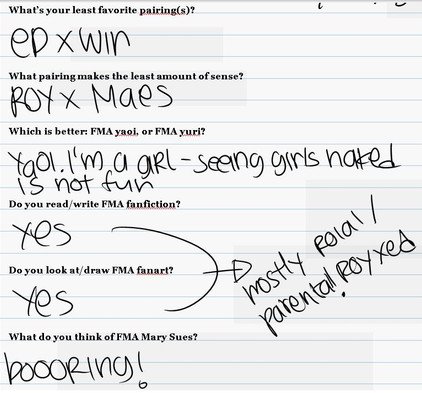 What's your least favorite pairing(s)?
ED x WIN
What pairing makes the least amount of sense?
ROY x Maes
Which is better: FMA yaoi, or FMA yuri?
Yaoi. I'm a girl - seeing girls naked
is not fun
Do you read/write FMA fanfiction?
yes
Do you look at/draw FMA fanart?
yes
mostly Roiai /
parental! Roy x ed
What do you think of FMA Mary Sues?
boooring!